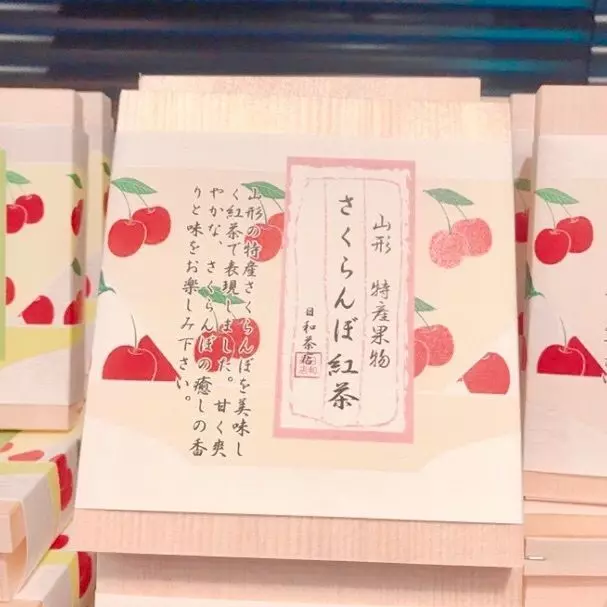 山形 特産果物
さくらんぼ紅茶
日和茶
山形の特産さくらんぼを美味し
く紅茶で表現しました。甘く爽
やかな、さくらんぼの癒しの香
りと味をお楽しみ下さい。